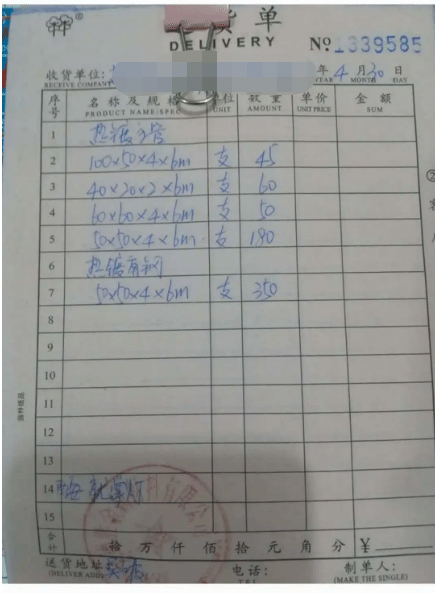 货单
DELIVERY
№1339585
收货单位: 年 4 月 30 日
RECEIVE COMPANY MONTH DAY
序号 名称及规格 单位 数量 单价 金额
PRODUCT NAME/SPEC UNIT AMOUNT UNIT PRICE SUM
1 热镀方管
2 100×50×4×6m 支 45
3 40×20×2×6m 支 60
4 60×60×4×6m 支 50
5 50×50×4×6m 支 190
6 热镀角钢
7 50×50×4×6m 支 350
8
9
10
11
12
13
14
15
合计 拾 万 仟 佰 拾 元 角 分 ¥
送货地址: 电话: 制单人:
(DELIVER ADD) TEL: (MAKE THE SINGLE)